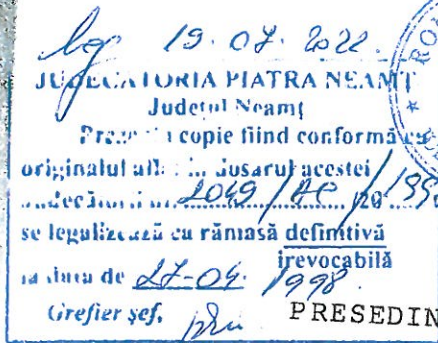 19.07.2022
JUDECATORIA PIATRA NEAMȚ
Județul Neamț
copie fiind conformă cu
originalul dosarul acestei
2049 / 199
se legalizează ca rămasă definitivă
irevocabilă
la data de 27-04. 1998
Grefier șef,
PRESEDIN
RO